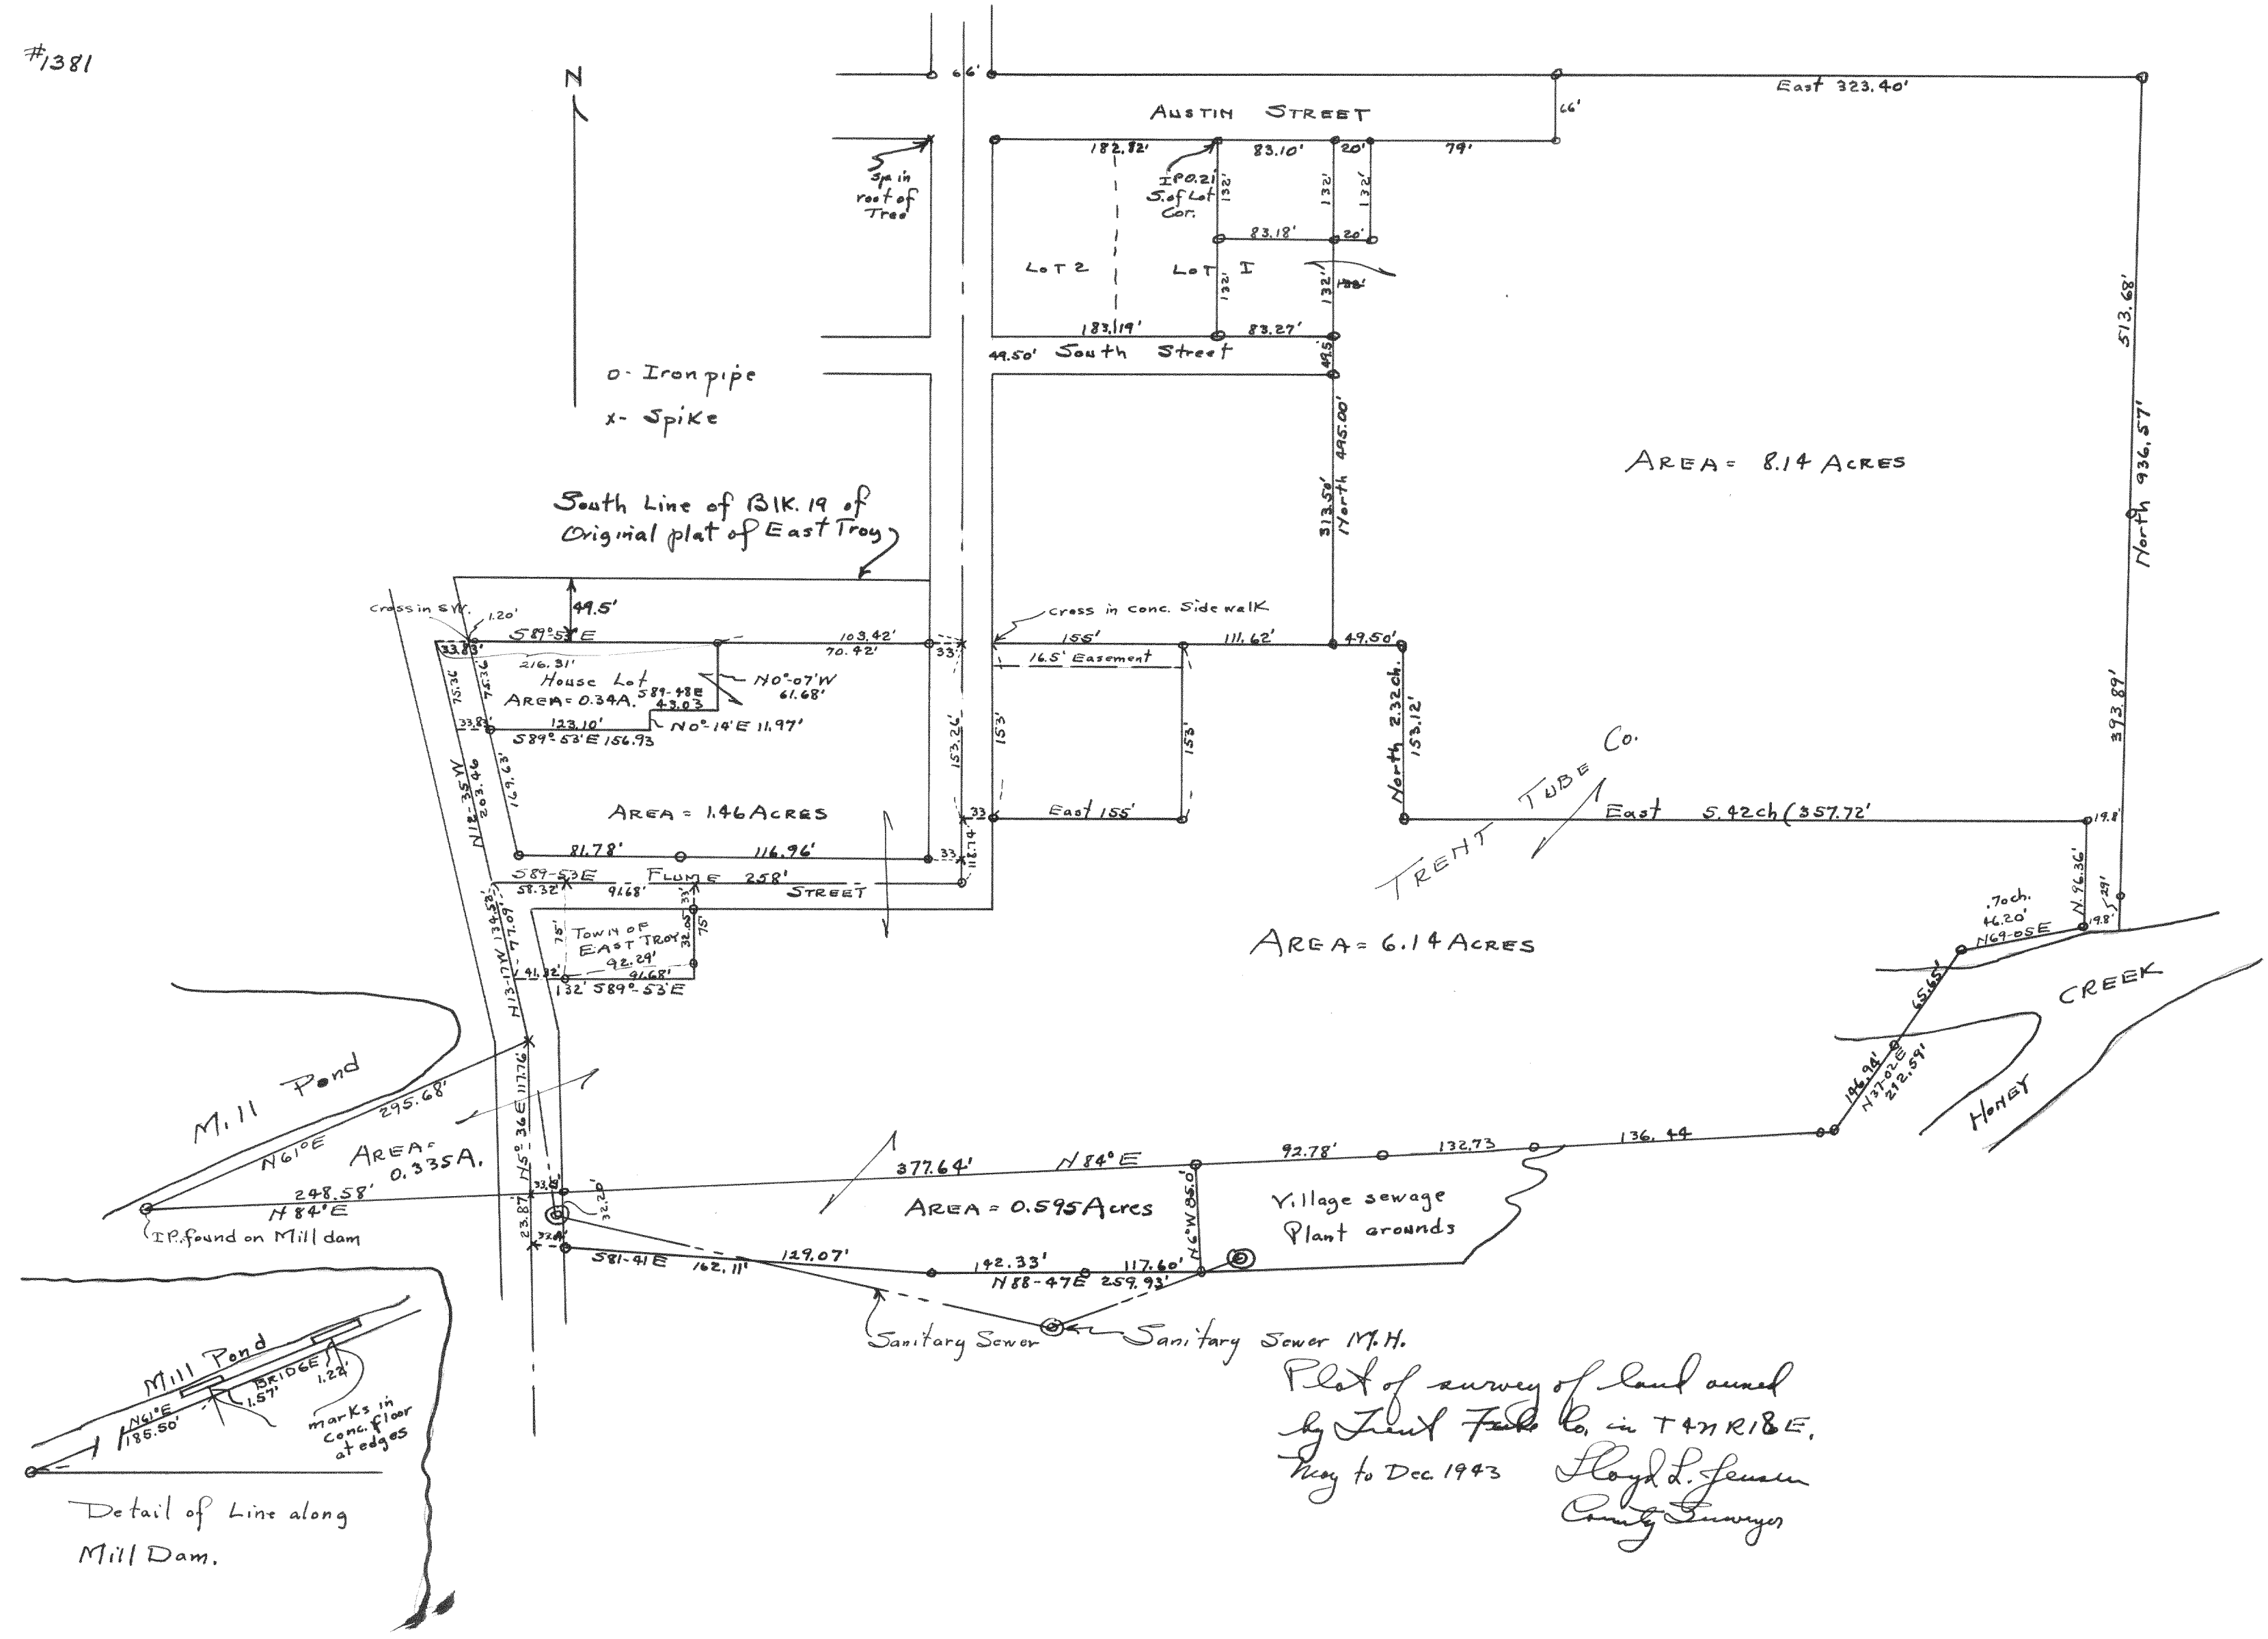 #1381
N
66'
East 323.40'
AUSTIN STREET
66'
182.82'
83.10'
20'
79'
Spk in
root of
Tree
IP 0.21'
S. of Lot
Cor.
132'
132'
132'
83.18'
20'
LOT 2
LOT 1
132'
132'
513.68'
183.19'
83.27'
49.50' South Street
49.5'
o- Iron pipe
x- Spike
313.50'
North 495.00'
North 936.57'
AREA = 8.14 ACRES
South Line of Blk. 19 of
Original plat of East Troy
49.5'
Cross in SW.
1.20'
Cross in conc. Sidewalk
S89°-53'E
103.42'
70.42'
33'
155'
111.62'
49.50'
33.83'
216.31'
16.5' Easement
House Lot
AREA = 0.34A.
S89-48E
43.03
N0°-07'W
61.68'
75.36'
75.36'
33.83'
123.10'
N0°-14'E 11.97'
S89°-53'E 156.93
North 2.32ch.
153.12'
393.89'
N12-35W
203.46
169.63'
153.26'
153'
153'
TRENT TUBE Co.
AREA = 1.46 ACRES
33
East 155'
East 5.42ch (357.72'
19.8'
81.78'
116.96'
33
118.74'
S89-53E
FLUME 258'
STREET
58.32'
91.68'
33'
N. 96.36'
29'
.70ch.
46.20'
N69-05E
19.8'
N13-17W 134.58'
77.09'
75'
TOWN OF
EAST TROY
32.05
75'
92.29'
41.32'
91.68'
132' S89°-53'E
AREA = 6.14 ACRES
65.65'
HONEY CREEK
146.94'
N37-02E
212.59'
Mill Pond
295.68'
N61°E
N5°-36E 117.76'
AREA =
0.335A.
377.64'
N84°E
92.78'
132.73
136.44
248.58'
N84°E
32.20'
23.87'
I.P. found on Mill dam
AREA = 0.595 Acres
N6°W 85.0'
Village sewage
Plant grounds
S81-41E
162.11'
129.07'
142.33'
117.60'
N88-47E 259.93'
Sanitary Sewer
Sanitary Sewer M.H.
Mill Pond
BRIDGE
1.22'
1.57'
N61°E
185.50'
marks in
conc. floor
at edges
Detail of Line along
Mill Dam.
Plat of survey of land owned
by Trent Tube Co. in T4N R18E.
May to Dec. 1943
Lloyd L. Jensen
County Surveyor